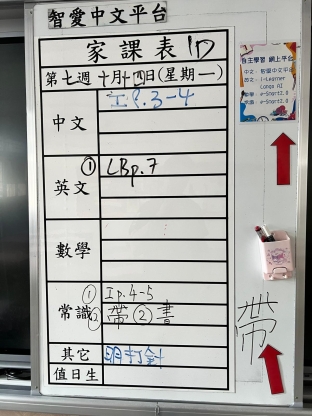 智愛中文平台
家課表 1D
第七週 十月十四日(星期一)
中文 I.P.3-4
英文 ① LBp.7
數學
常識 ① Ip.4-5
② 帶②書
其它 明打針
值日生
自主學習 網上平台
中文：智愛中文平台
英文：i-Learner
Longo AI
數學：e-Smart2.0
常識：e-Smart2.0
帶